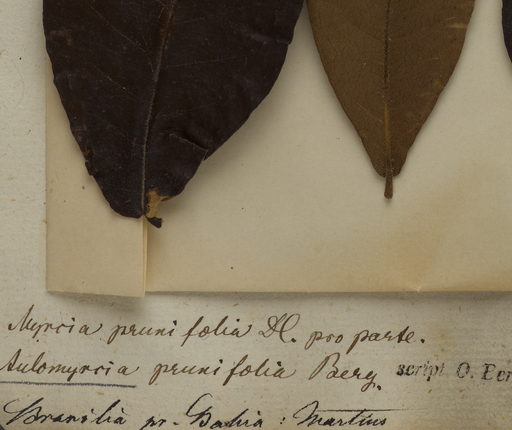 Myrcia prunifolia DC. pro parte.
Aulomyrcia prunifolia Berg.
script O. Ber
Brasilia pr. Bahia : Martius